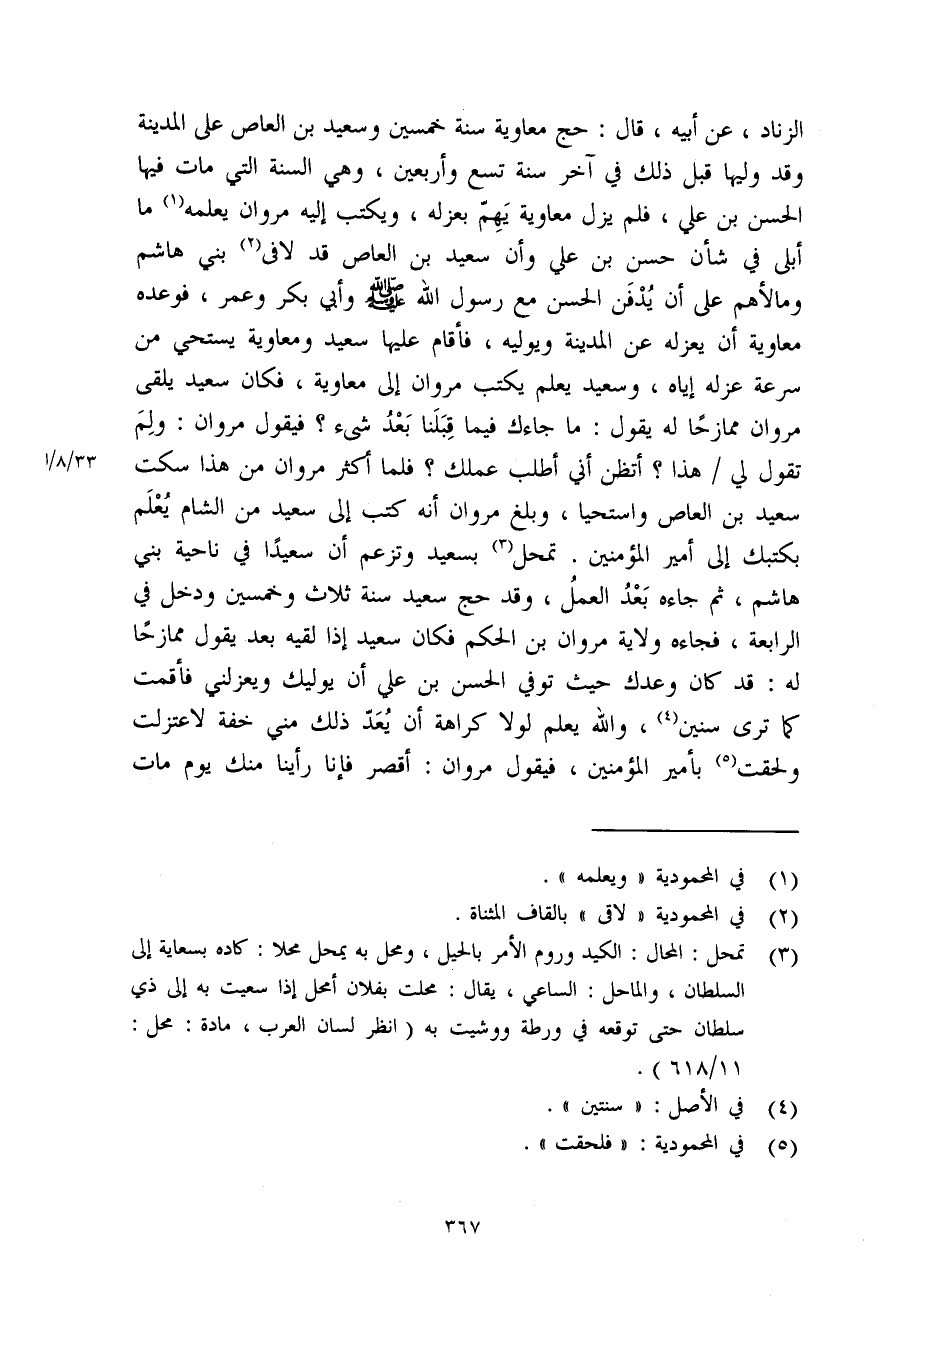 الزناد ، عن أبيه ، قال : حج معاوية سنة خمسين وسعيد بن العاص على المدينة
وقد وليها قبل ذلك في آخر سنة تسع وأربعين ، وهي السنة التي مات فيها
الحسن بن علي ، فلم يزل معاوية يَهِمّ بعزله ، ويكتب إليه مروان يعلمه(١) ما
أبلى في شأن حسن بن علي وأن سعيد بن العاص قد لافى(٢) بني هاشم
ومالأهم على أن يُدْفَن الحسن مع رسول الله ﷺ وأبي بكر وعمر ، فوعده
معاوية أن يعزله عن المدينة ويوليه ، فأقام عليها سعيد ومعاوية يستحي من
سرعة عزله إياه ، وسعيد يعلم يكتب مروان إلى معاوية ، فكان سعيد يلقى
مروان ممازحًا له يقول : ما جاءك فيما قِبَلَنا بَعْدُ شىء ؟ فيقول مروان : ولِمَ
تقول لي / هذا ؟ أتظن أني أطلب عملك ؟ فلما أكثر مروان من هذا سكت
١/٨/٣٣
سعيد بن العاص واستحيا ، وبلغ مروان أنه كتب إلى سعيد من الشام يُعْلَم
بكتبك إلى أمير المؤمنين . تمحل(٣) بسعيد وتزعم أن سعيدًا في ناحية بني
هاشم ، ثم جاءه بَعْدُ العملُ ، وقد حج سعيد سنة ثلاث وخمسين ودخل في
الرابعة ، فجاءه ولاية مروان بن الحكم فكان سعيد إذا لقيه بعد يقول ممازحًا
له : قد كان وعدك حيث توفي الحسن بن علي أن يوليك ويعزلني فأقمت
كما ترى سنين(٤) ، والله يعلم لولا كراهة أن يُعَدّ ذلك مني خفة لاعتزلت
ولحقت(٥) بأمير المؤمنين ، فيقول مروان : أقصر فإنا رأينا منك يوم مات
(١) في المحمودية « ويعلمه » .
(٢) في المحمودية « لاقى » بالقاف المثناة .
(٣) تمحل : المحال : الكيد وروم الأمر بالحيل ، ومحل به يمحل محلا : كاده بسعاية إلى
السلطان ، والماحل : الساعي ، يقال : محلت بفلان أمحل إذا سعيت به إلى ذي
سلطان حتى توقعه في ورطة ووشيت به ( انظر لسان العرب ، مادة : محل :
٦١٨/١١ ) .
(٤) في الأصل : « سنتين » .
(٥) في المحمودية : « فلحقت » .
٣٦٧